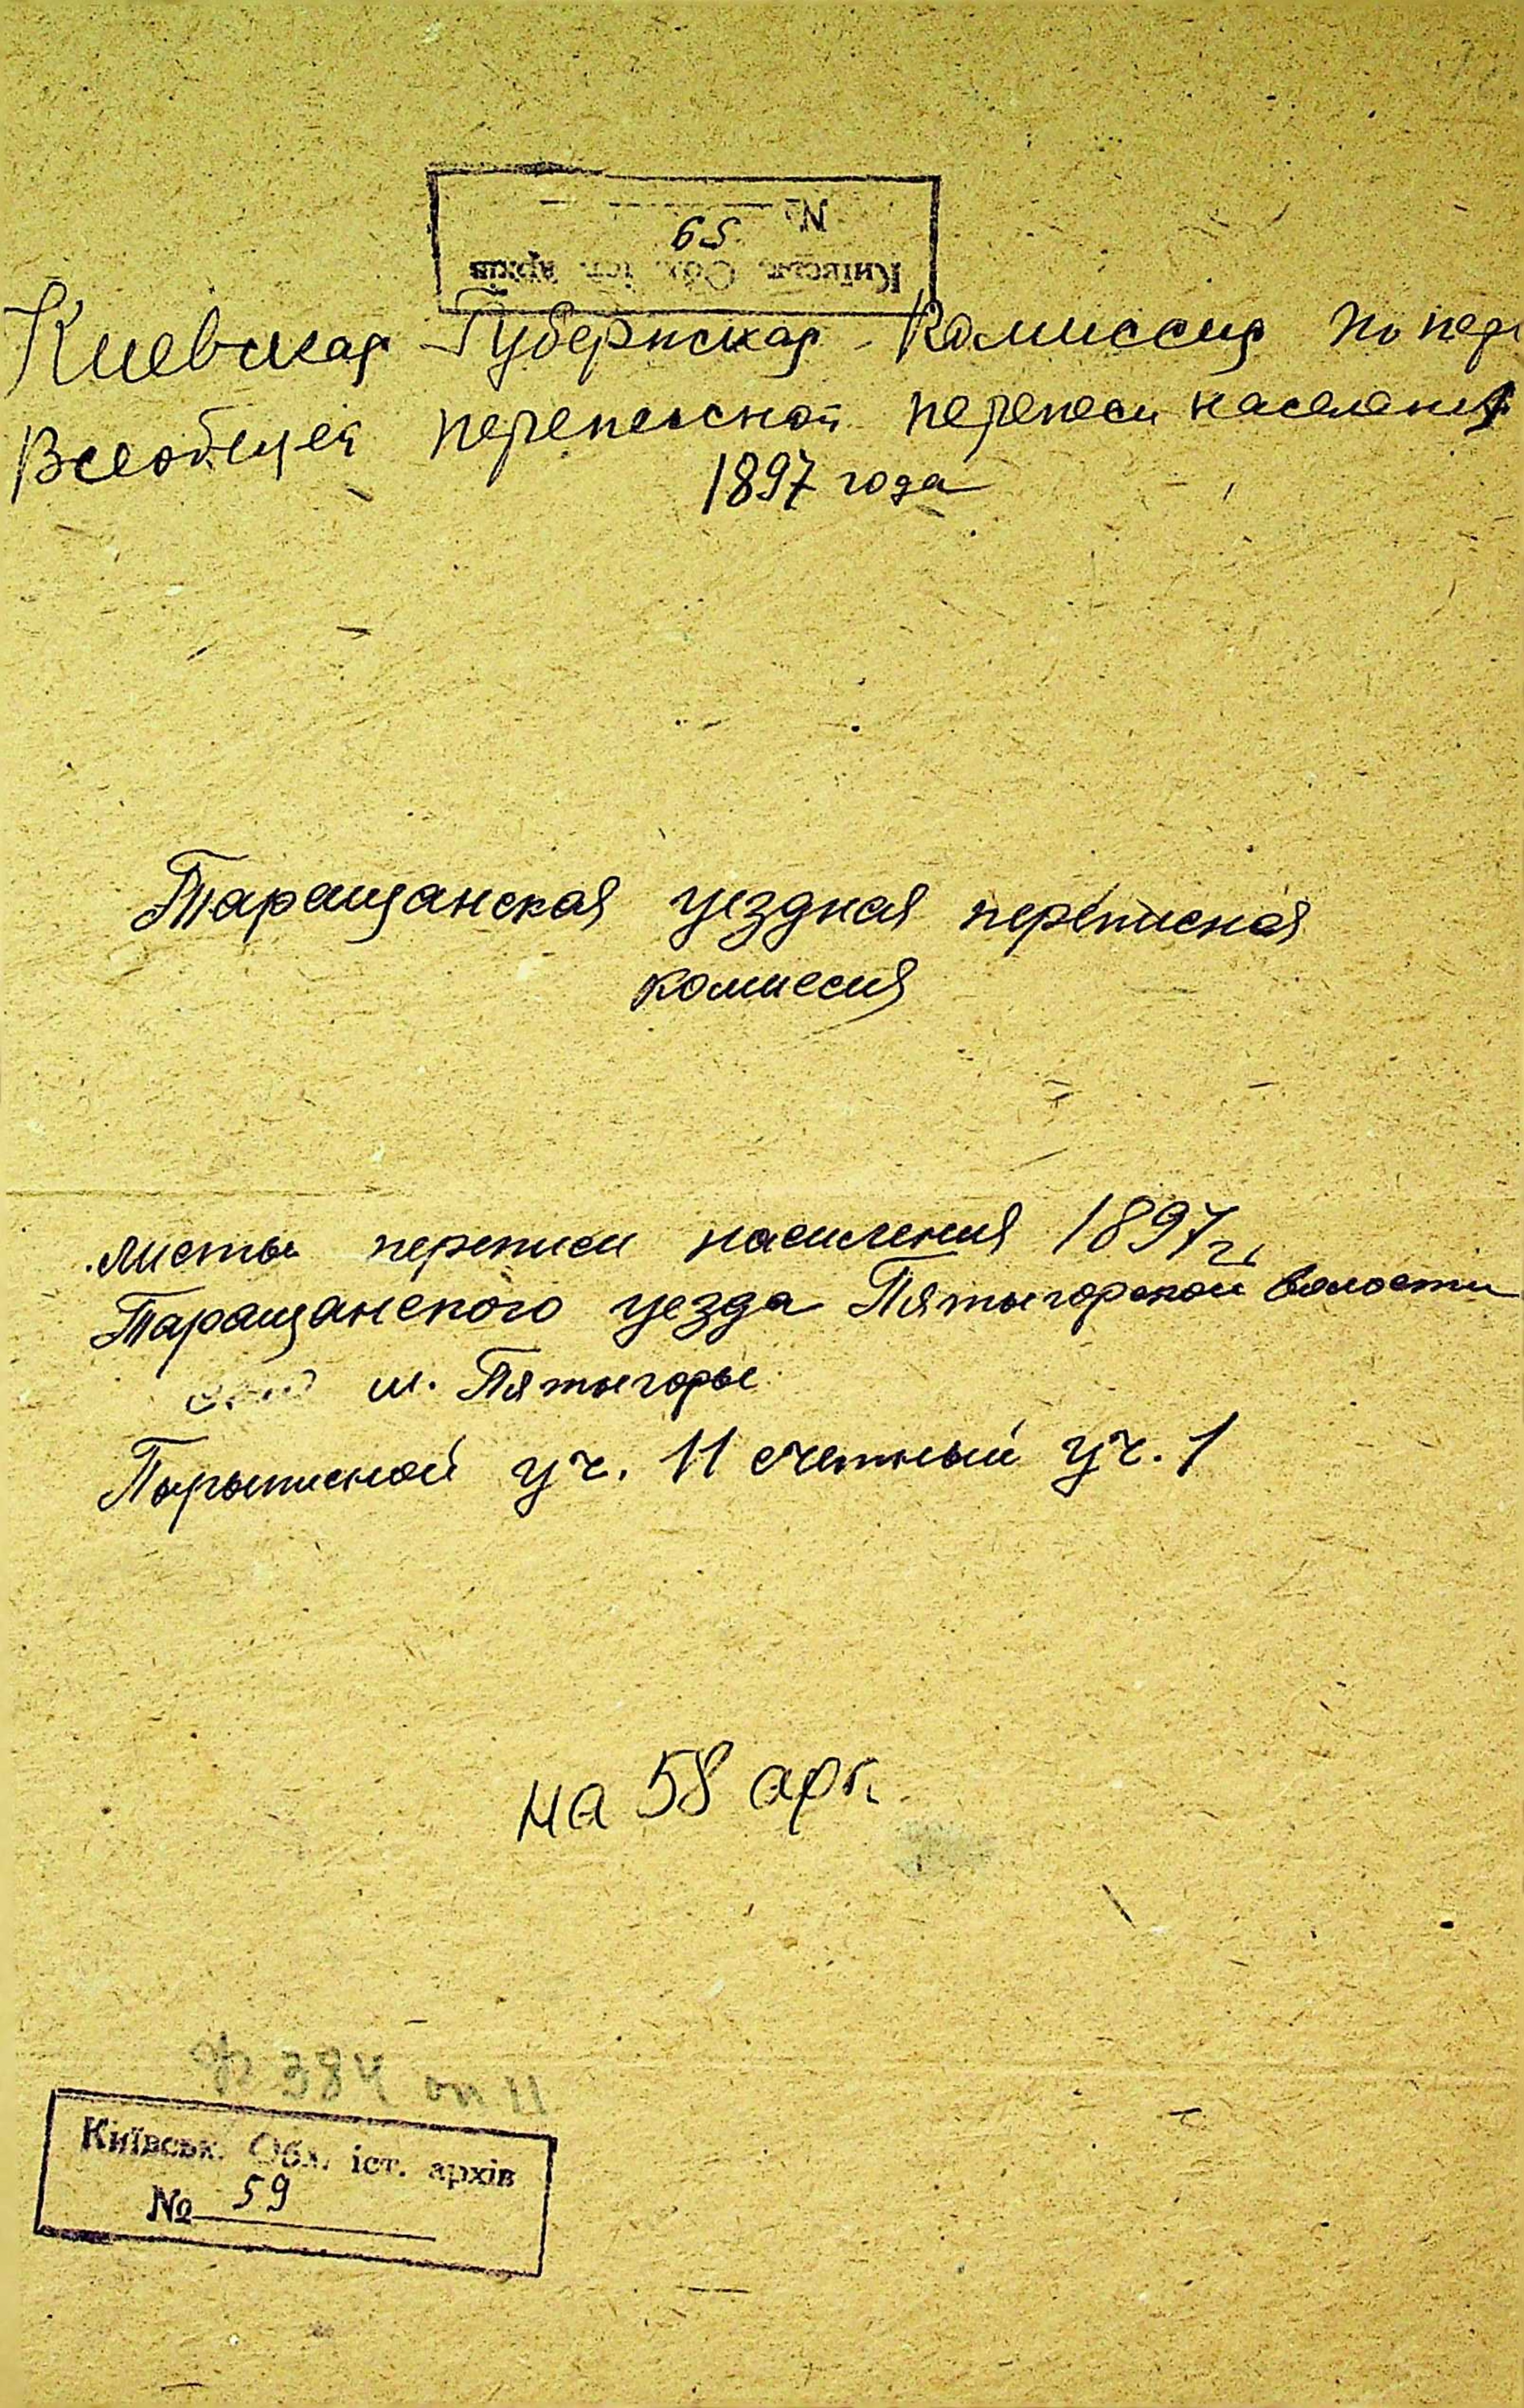 Київськ. Обл. іст. архів
№ 59
Киевская Губернская Комиссия по пер
Всеобщей переписной переписи населения
1897 года
Таращанская уездная переписная
комиссия
листы переписи населения 1897 г.
Таращанского уезда Пятыгорской волости
м. Пятыгоры
Перыписной уч. 11 счетный уч. 1
на 58 арк.
ф 384 оп 11
Київськ. Обл. іст. архів
№ 59